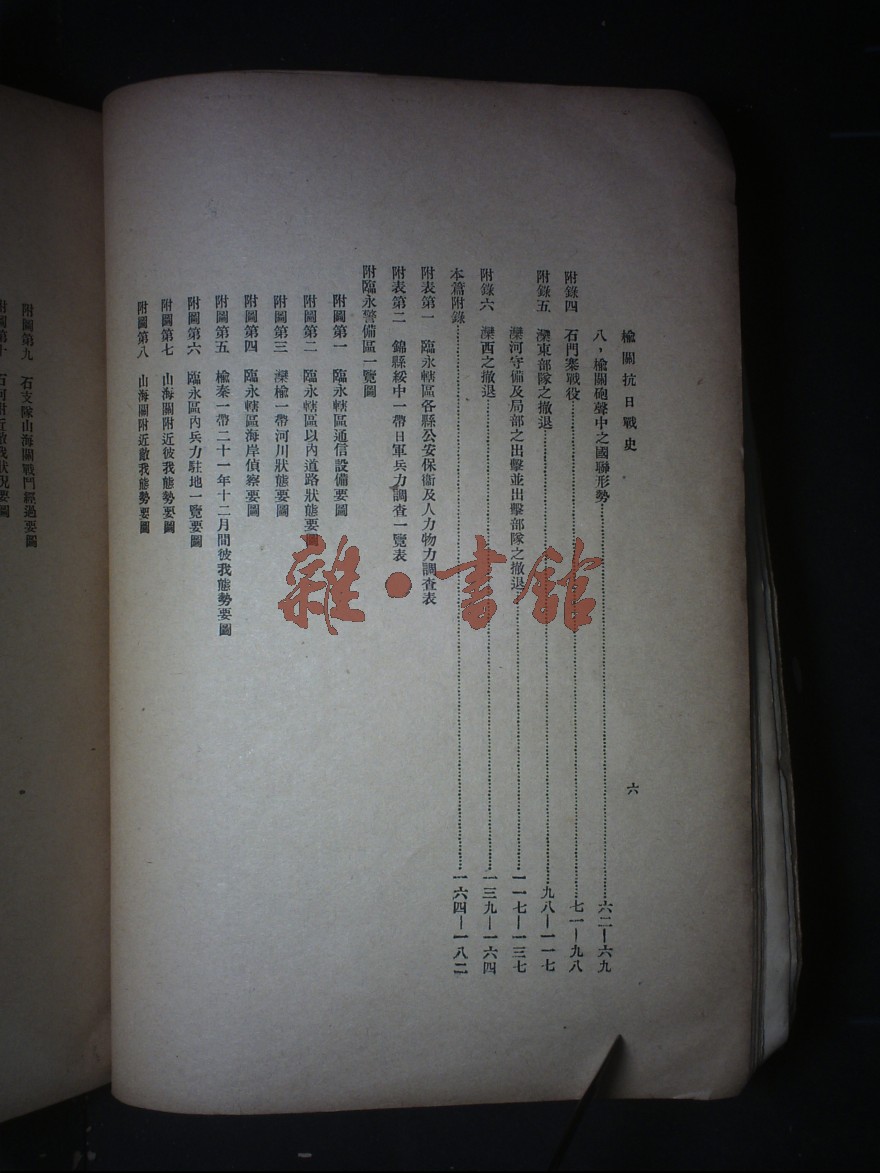 榆關抗日戰史
六
八，榆關砲聲中之國聯形勢……六二—六九
附錄四　石門寨戰役……七一—九八
附錄五　灤東部隊之撤退……九八—一一七
灤河守備及局部之出擊並出擊部隊之撤退……一一七—一三七
附錄六　灤西之撤退……一三九—一六四
本篇附錄……一六四—一八二
附表第一　臨永轄區各縣公安保衞及人力物力調查表
附表第二　錦縣綏中一帶日軍兵力調查一覽表
附臨永警備區一覽圖
附圖第一　臨永轄區通信設備要圖
附圖第二　臨永轄區以內道路狀態要圖
附圖第三　灤榆一帶河川狀態要圖
附圖第四　臨永轄區海岸偵察要圖
附圖第五　榆秦一帶二十一年十二月間彼我態勢要圖
附圖第六　臨永區內兵力駐地一覽要圖
附圖第七　山海關附近彼我態勢要圖
附圖第八　山海關附近敵我態勢要圖
附圖第九　石支隊山海關戰鬥經過要圖
附圖第十　石河附近敵我狀況要圖
雜·書館